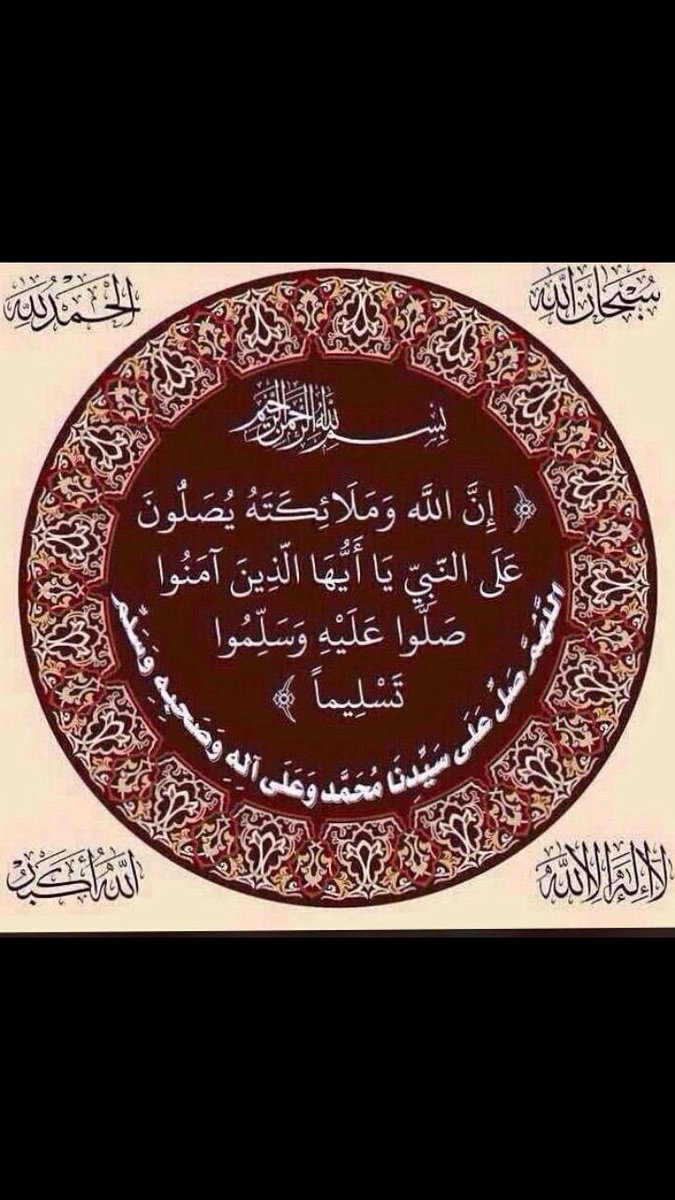 سُبْحَانَ اللهِ
الحَمْدُ لِلهِ
بِسْمِ اللهِ الرَّحْمنِ الرَّحِيمِ
﴿ إِنَّ اللَّهَ وَمَلَائِكَتَهُ يُصَلُّونَ
عَلَى النَّبِيِّ يَا أَيُّهَا الَّذِينَ آمَنُوا
صَلُّوا عَلَيْهِ وَسَلِّمُوا
تَسْلِيماً ﴾
اللَّهُمَّ صَلِّ عَلَى سَيِّدِنَا مُحَمَّد وَعَلَى آلِهِ وَصَحْبِهِ وَسَلِّم
لَا إِلَهَ إِلَّا اللهُ
اللهُ أَكْبَرُ